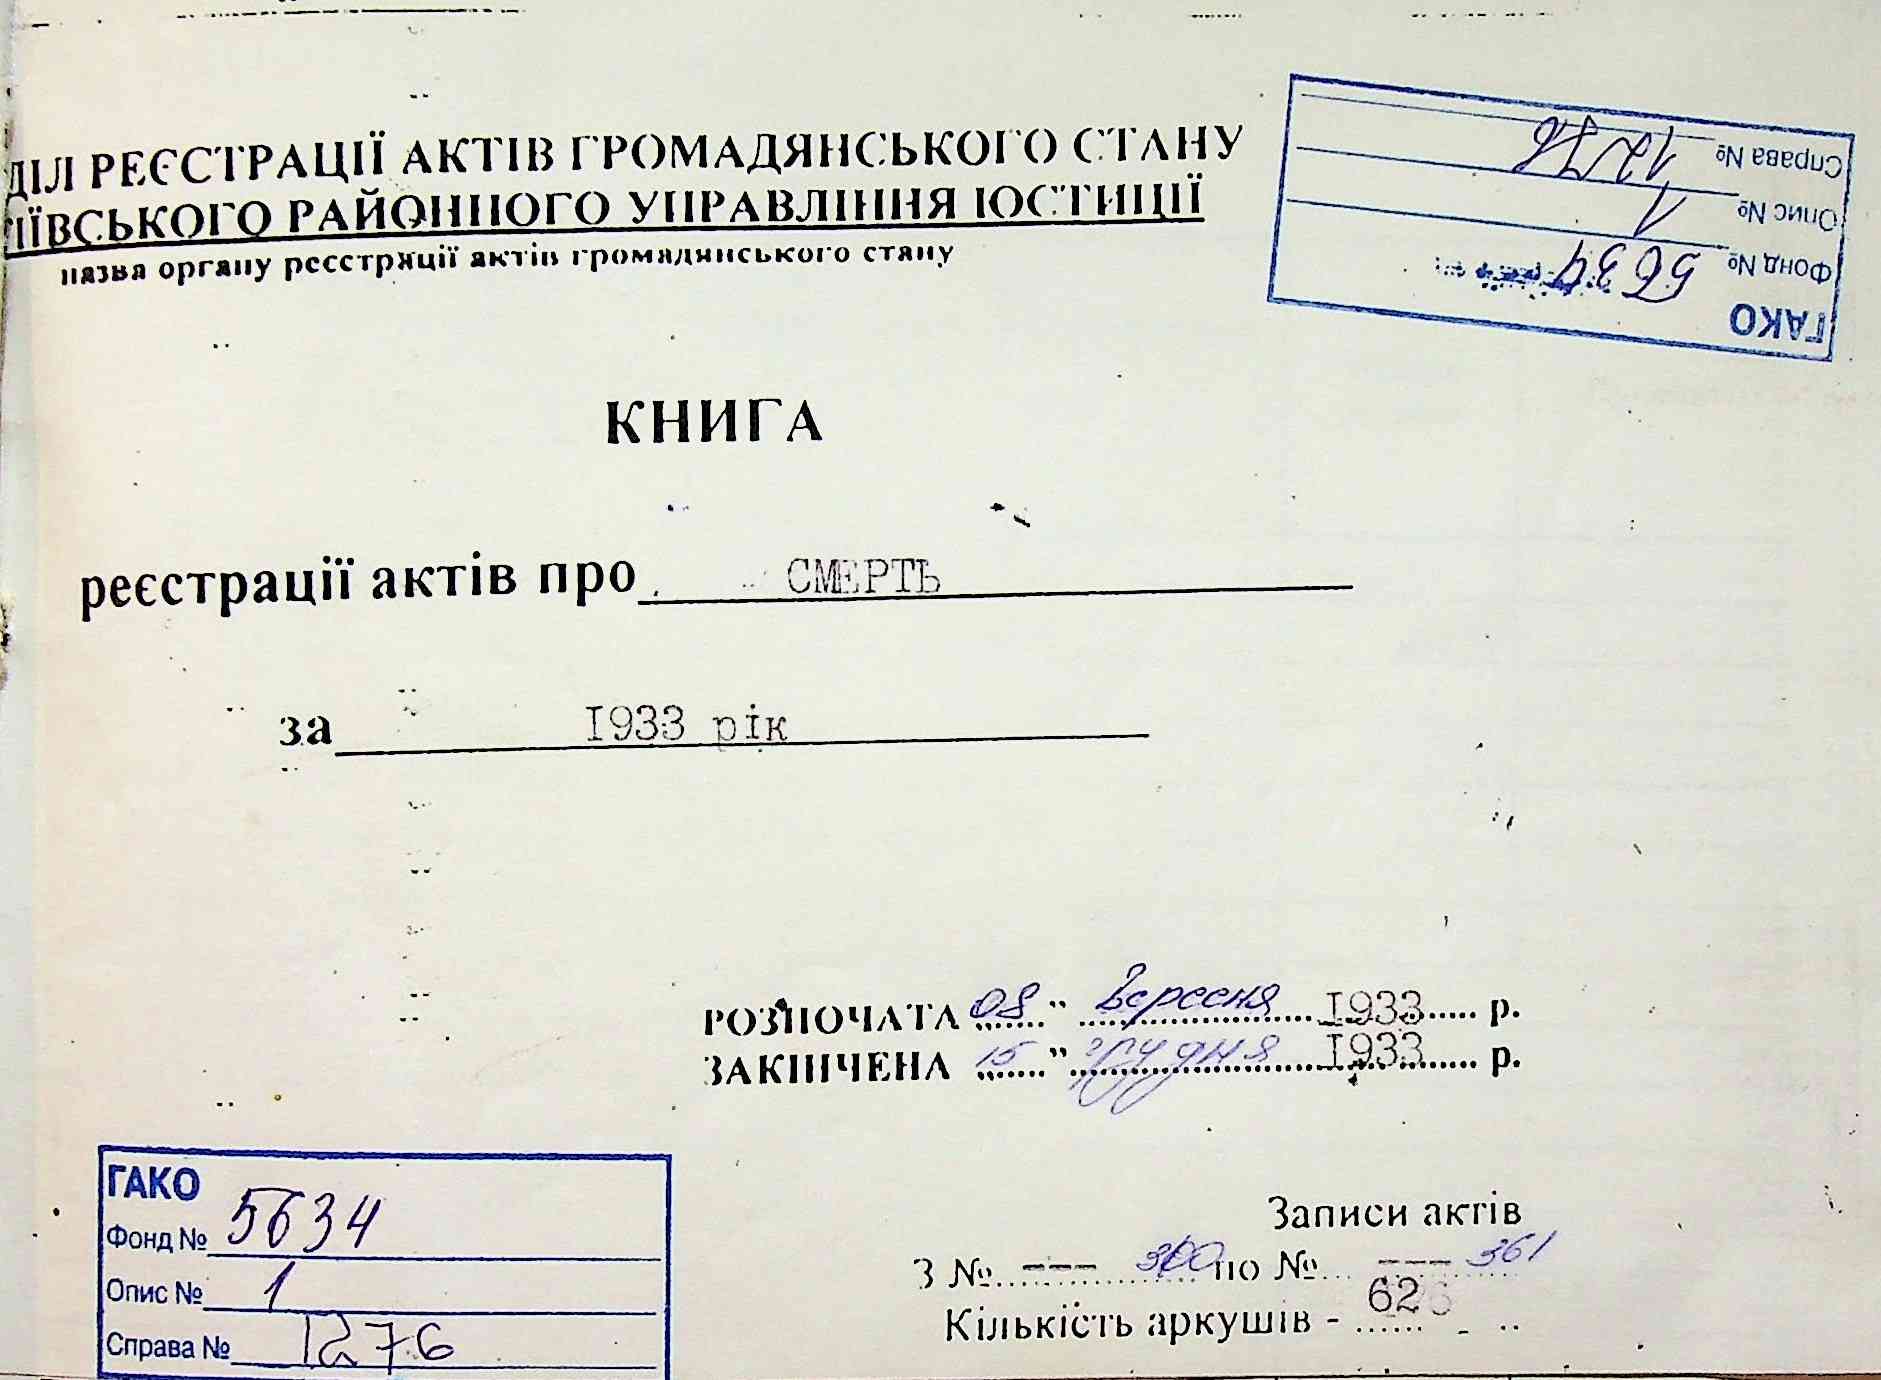 ДІЛ РЕЄСТРАЦІЇ АКТІВ ГРОМАДЯНСЬКОГО СТАНУ
ІЇВСЬКОГО РАЙОННОГО УПРАВЛІННЯ ЮСТИЦІЇ
назва органу реєстрації актів громадянського стану
ГАКО
Фонд № 5634
Опис № 1
Справа № 1276
КНИГА
реєстрації актів про СМЕРТЬ
за 1933 рік
РОЗПОЧАТА 08 " Вересня 1933 р.
ЗАКІНЧЕНА 15 " грудня 1933 р.
ГАКО
Фонд № 5634
Опис № 1
Справа № 1276
Записи актів
З № --- 300 по № --- 361
Кількість аркушів - 62